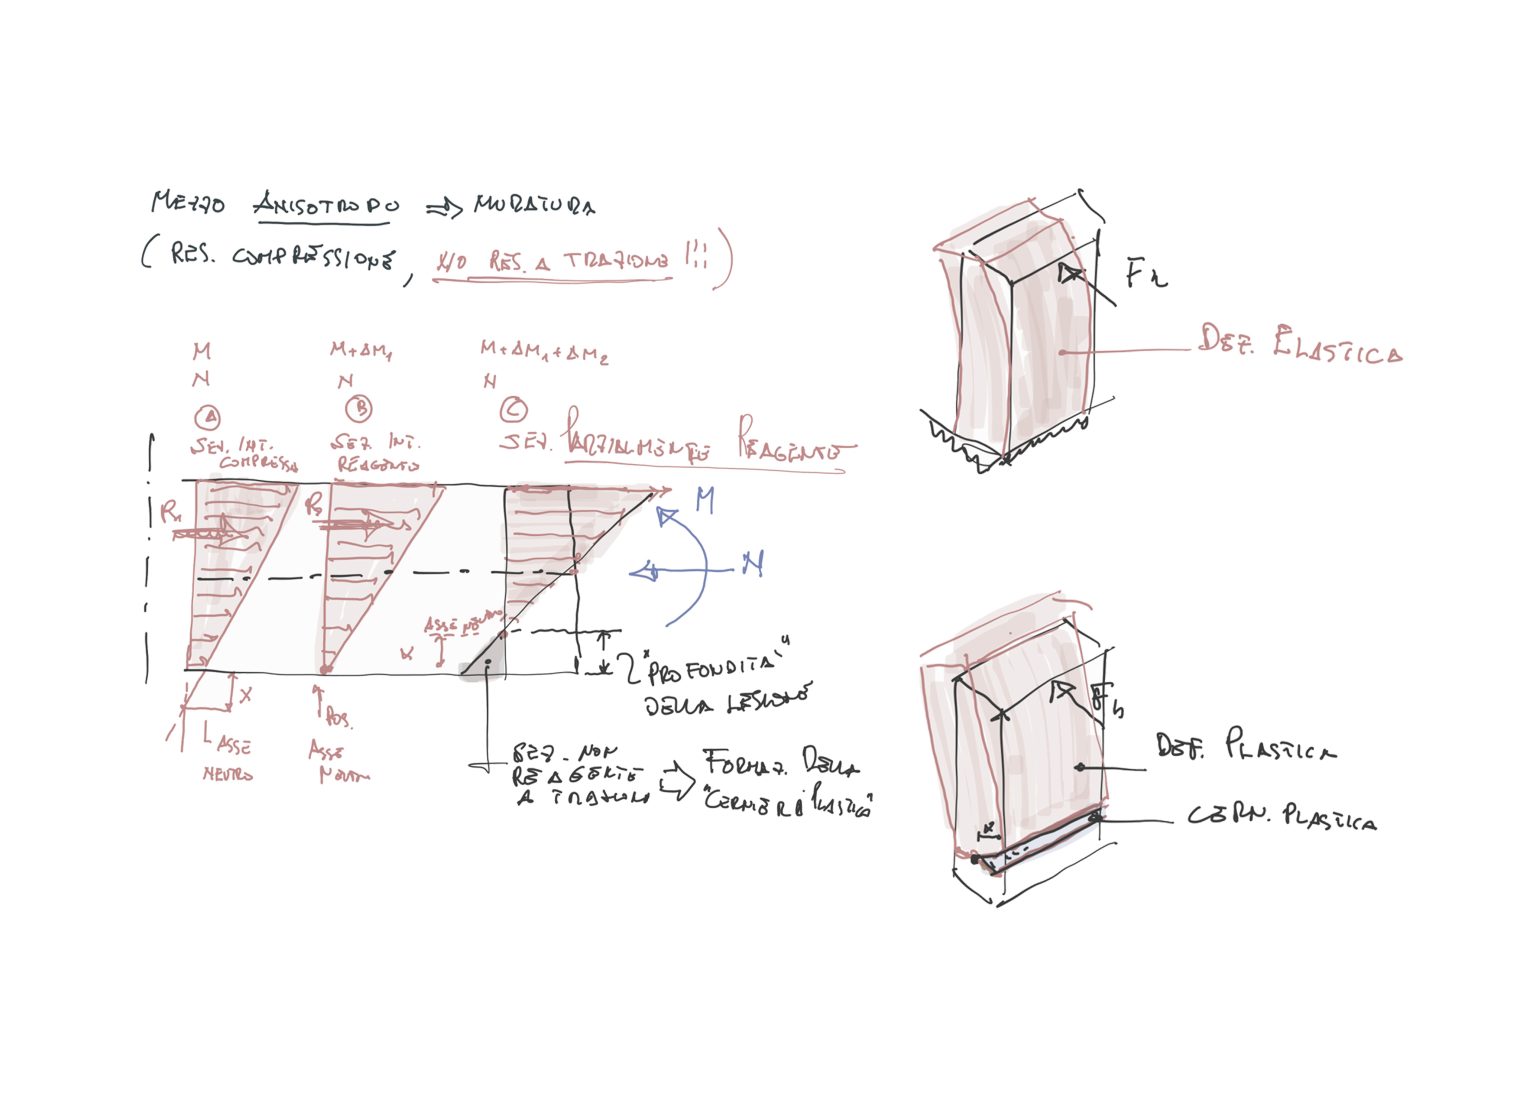 MEZZO ANISOTROPO ⇒ MURATURA
( RES. COMPRESSIONE, NO RES. A TRAZIONE !!! )
M
N
A
SEZ. INT.
COMPRESSA
M+ΔM₁
N
B
SEZ. INT.
REAGENTE
M+ΔM₁+ΔM₂
N
C
SEZ. PARZIALMENTE REAGENTE
R
R
M
N
ASSE NEUTRO
X
"PROFONDITA'"
DELLA LESIONE
X
ASSE
NEUTRO
POS.
ASSE
NEUTRO
SEZ. NON
REAGENTE
A TRAZIONE
⇒ FORMAZ. DELLA
"CERNIERA PLASTICA"
DEF. ELASTICA
Fh
DEF. PLASTICA
CERN. PLASTICA